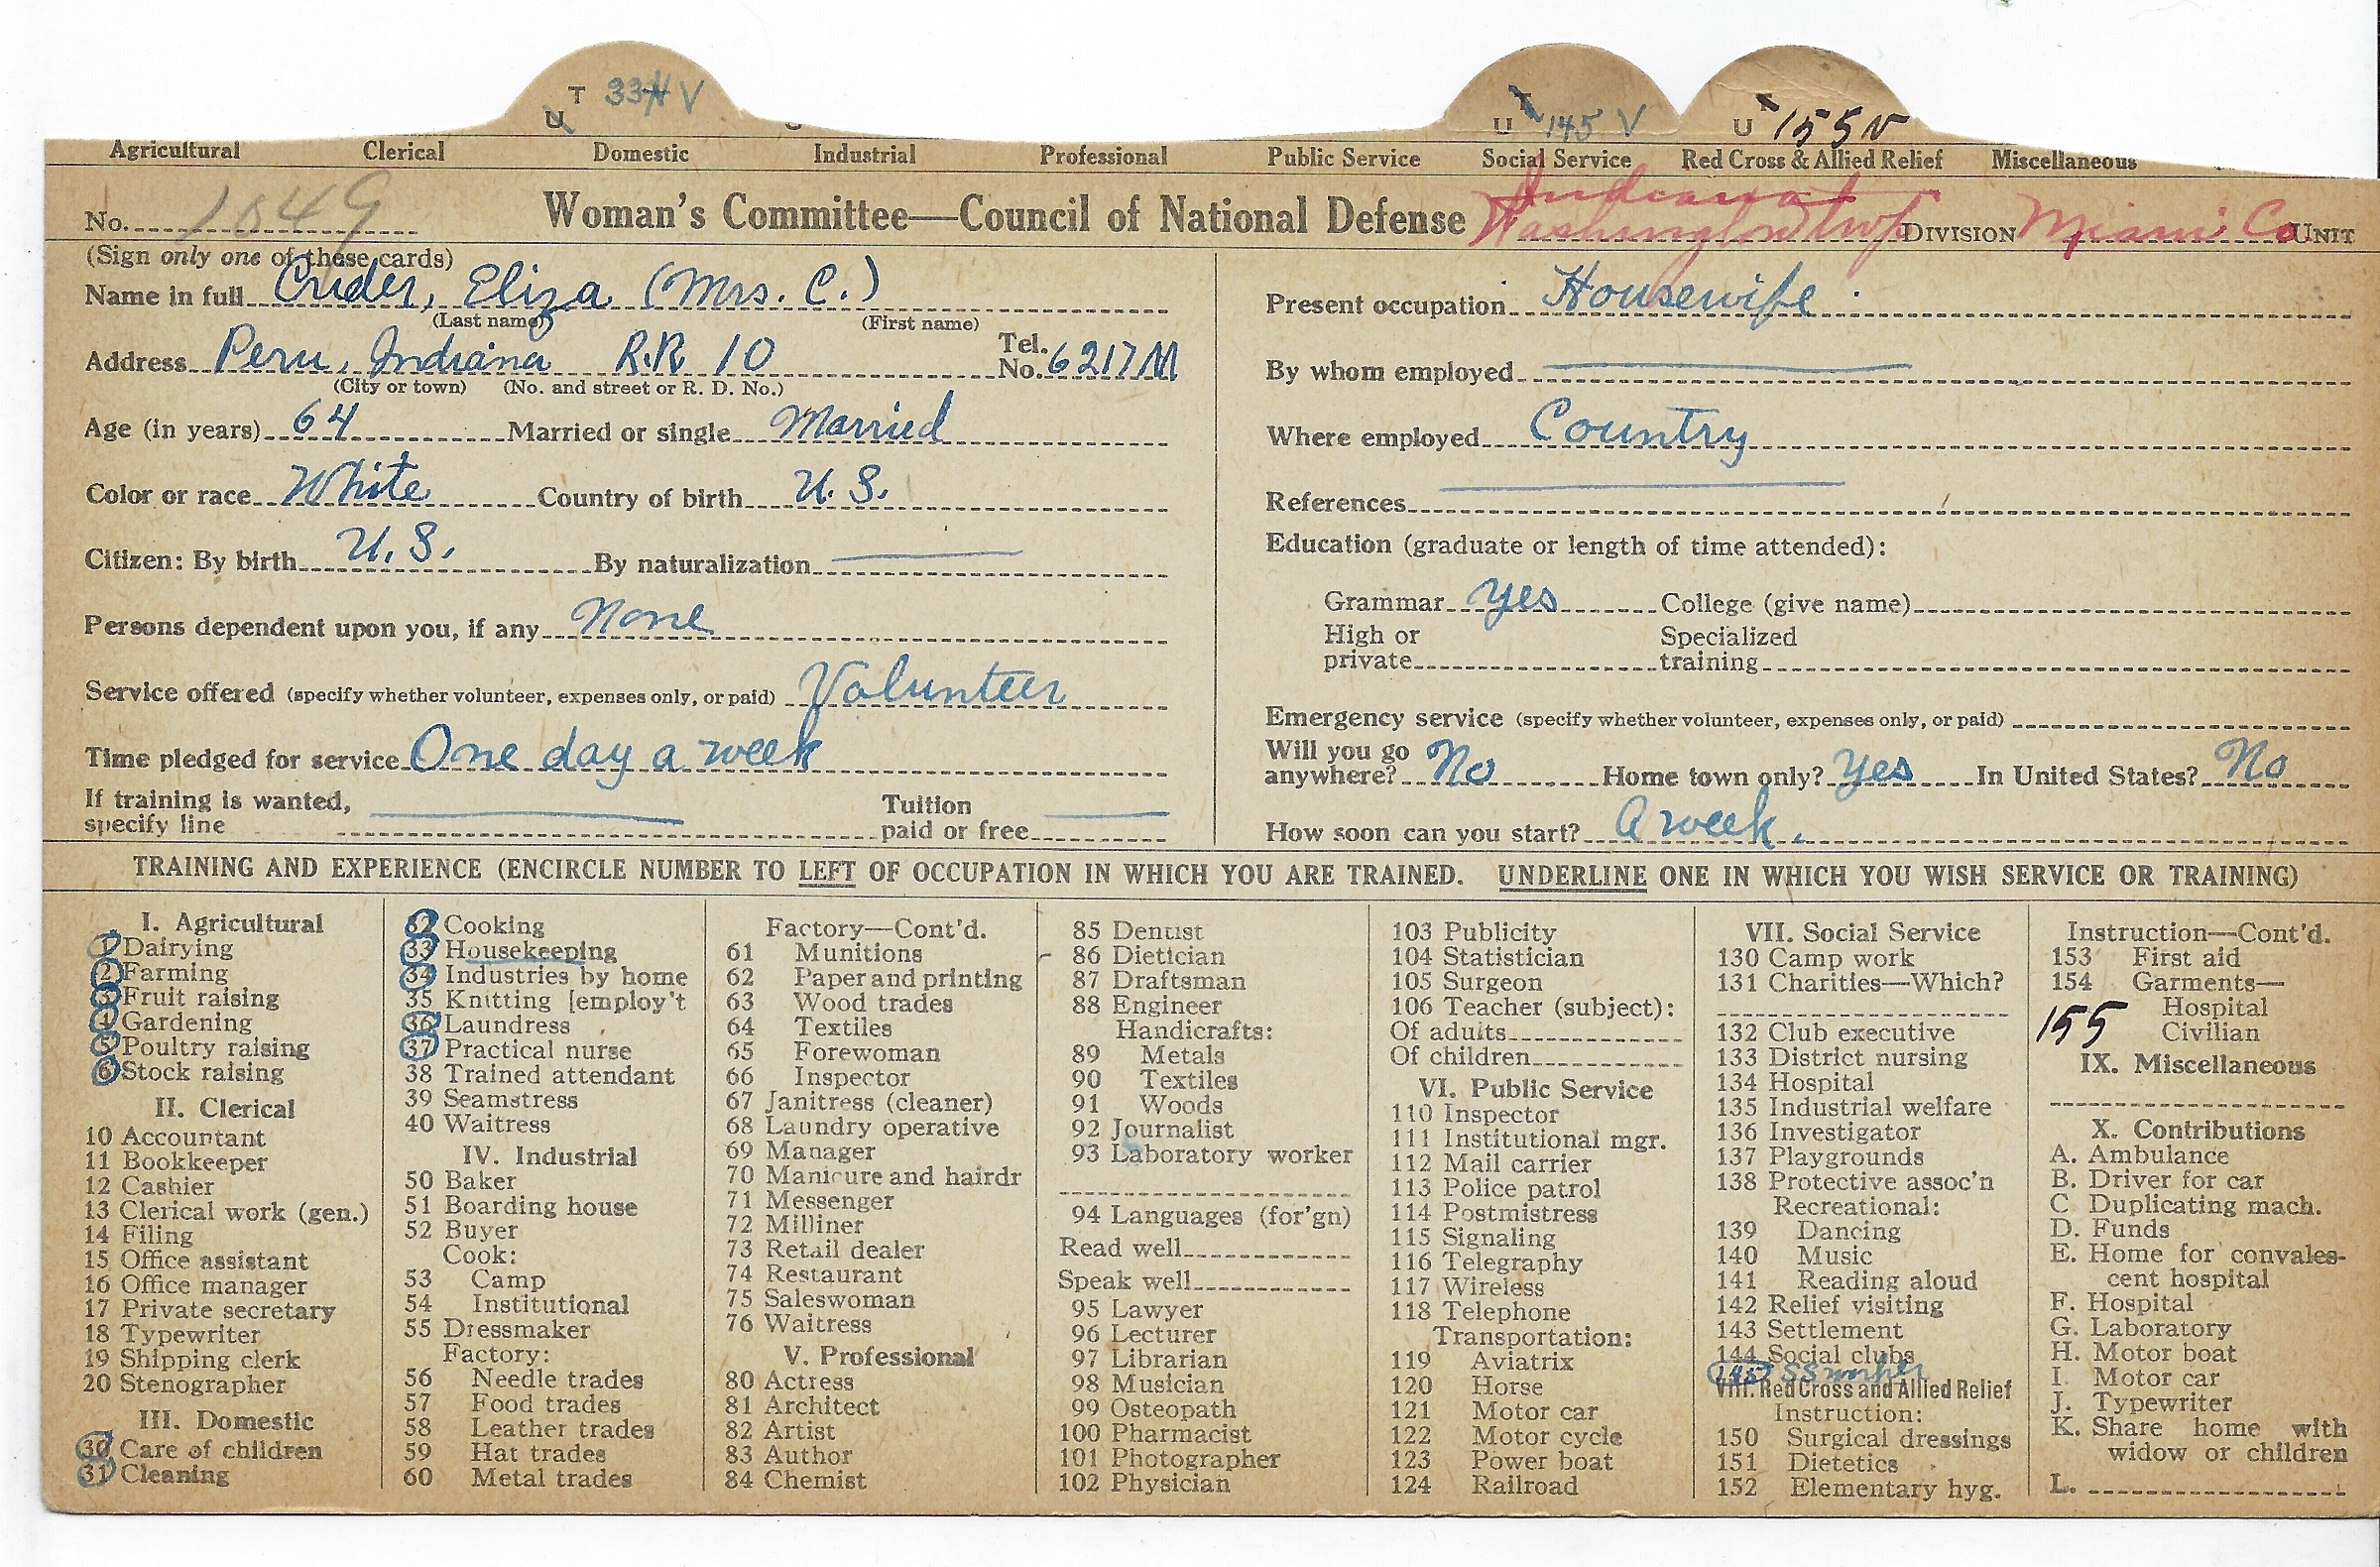 T 33 V
U
U 145 V
U 155 V
Agricultural Clerical Domestic Industrial Professional Public Service Social Service Red Cross & Allied Relief Miscellaneous
No. 1049 Woman's Committee—Council of National Defense Indiana Washington twp. DIVISION Miami Co UNIT
(Sign only one of these cards)
Name in full Crider, Eliza (Mrs. C.)
(Last name) (First name)
Address Peru, Indiana R.R 10 Tel. No. 6217M
(City or town) (No. and street or R. D. No.)
Age (in years) 64 Married or single Married
Color or race White Country of birth U. S.
Citizen: By birth U. S. By naturalization
Persons dependent upon you, if any None
Service offered (specify whether volunteer, expenses only, or paid) Volunteer
Time pledged for service One day a week
If training is wanted, specify line Tuition paid or free
Present occupation Housewife
By whom employed
Where employed Country
References
Education (graduate or length of time attended):
Grammar yes College (give name)
High or private Specialized training
Emergency service (specify whether volunteer, expenses only, or paid)
Will you go anywhere? No Home town only? Yes In United States? No
How soon can you start? A week.
TRAINING AND EXPERIENCE (ENCIRCLE NUMBER TO LEFT OF OCCUPATION IN WHICH YOU ARE TRAINED. UNDERLINE ONE IN WHICH YOU WISH SERVICE OR TRAINING)
I. Agricultural
1 Dairying
2 Farming
3 Fruit raising
4 Gardening
5 Poultry raising
6 Stock raising
II. Clerical
10 Accountant
11 Bookkeeper
12 Cashier
13 Clerical work (gen.)
14 Filing
15 Office assistant
16 Office manager
17 Private secretary
18 Typewriter
19 Shipping clerk
20 Stenographer
III. Domestic
30 Care of children
31 Cleaning
32 Cooking
33 Housekeeping
34 Industries by home
35 Knitting [employ't
36 Laundress
37 Practical nurse
38 Trained attendant
39 Seamstress
40 Waitress
IV. Industrial
50 Baker
51 Boarding house
52 Buyer
Cook:
53 Camp
54 Institutional
55 Dressmaker
Factory:
56 Needle trades
57 Food trades
58 Leather trades
59 Hat trades
60 Metal trades
Factory—Cont'd.
61 Munitions
62 Paper and printing
63 Wood trades
64 Textiles
65 Forewoman
66 Inspector
67 Janitress (cleaner)
68 Laundry operative
69 Manager
70 Manicure and hairdr
71 Messenger
72 Milliner
73 Retail dealer
74 Restaurant
75 Saleswoman
76 Waitress
V. Professional
80 Actress
81 Architect
82 Artist
83 Author
84 Chemist
85 Dentist
86 Dietician
87 Draftsman
88 Engineer
Handicrafts:
89 Metals
90 Textiles
91 Woods
92 Journalist
93 Laboratory worker
94 Languages (for'gn)
Read well
Speak well
95 Lawyer
96 Lecturer
97 Librarian
98 Musician
99 Osteopath
100 Pharmacist
101 Photographer
102 Physician
103 Publicity
104 Statistician
105 Surgeon
106 Teacher (subject):
Of adults
Of children
VI. Public Service
110 Inspector
111 Institutional mgr.
112 Mail carrier
113 Police patrol
114 Postmistress
115 Signaling
116 Telegraphy
117 Wireless
118 Telephone
Transportation:
119 Aviatrix
120 Horse
121 Motor car
122 Motor cycle
123 Power boat
124 Railroad
VII. Social Service
130 Camp work
131 Charities—Which?
132 Club executive
133 District nursing
134 Hospital
135 Industrial welfare
136 Investigator
137 Playgrounds
138 Protective assoc'n
Recreational:
139 Dancing
140 Music
141 Reading aloud
142 Relief visiting
143 Settlement
144 Social clubs
145 SS worker
VIII. Red Cross and Allied Relief
Instruction:
150 Surgical dressings
151 Dietetics
152 Elementary hyg.
Instruction—Cont'd.
153 First aid
154 Garments—
Hospital
155 Civilian
IX. Miscellaneous
X. Contributions
A. Ambulance
B. Driver for car
C Duplicating mach.
D. Funds
E. Home for convales-
cent hospital
F. Hospital
G. Laboratory
H. Motor boat
I. Motor car
J. Typewriter
K. Share home with
widow or children
L.